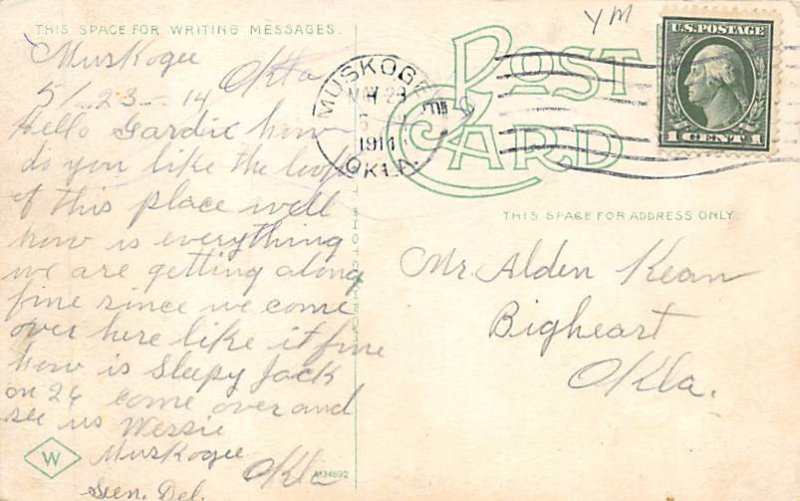 THIS SPACE FOR WRITING MESSAGES.
Muskogee Okla
5/ 23 - 14
Hello Gardie how
do you like the looks
of this place well
how is everything
we are getting along
fine since we come
over here like it fine
how is Sleepy Jack
on 26 come over and
see us Wessie
Muskogee Okla
Gen. Del.
W
A-34892
YM
POST CARD
MUSKOGEE
1914
OKLA.
U.S. POSTAGE
1 CENT 1
THIS SPACE FOR ADDRESS ONLY.
Mr. Alden Kean
Bigheart
Okla.